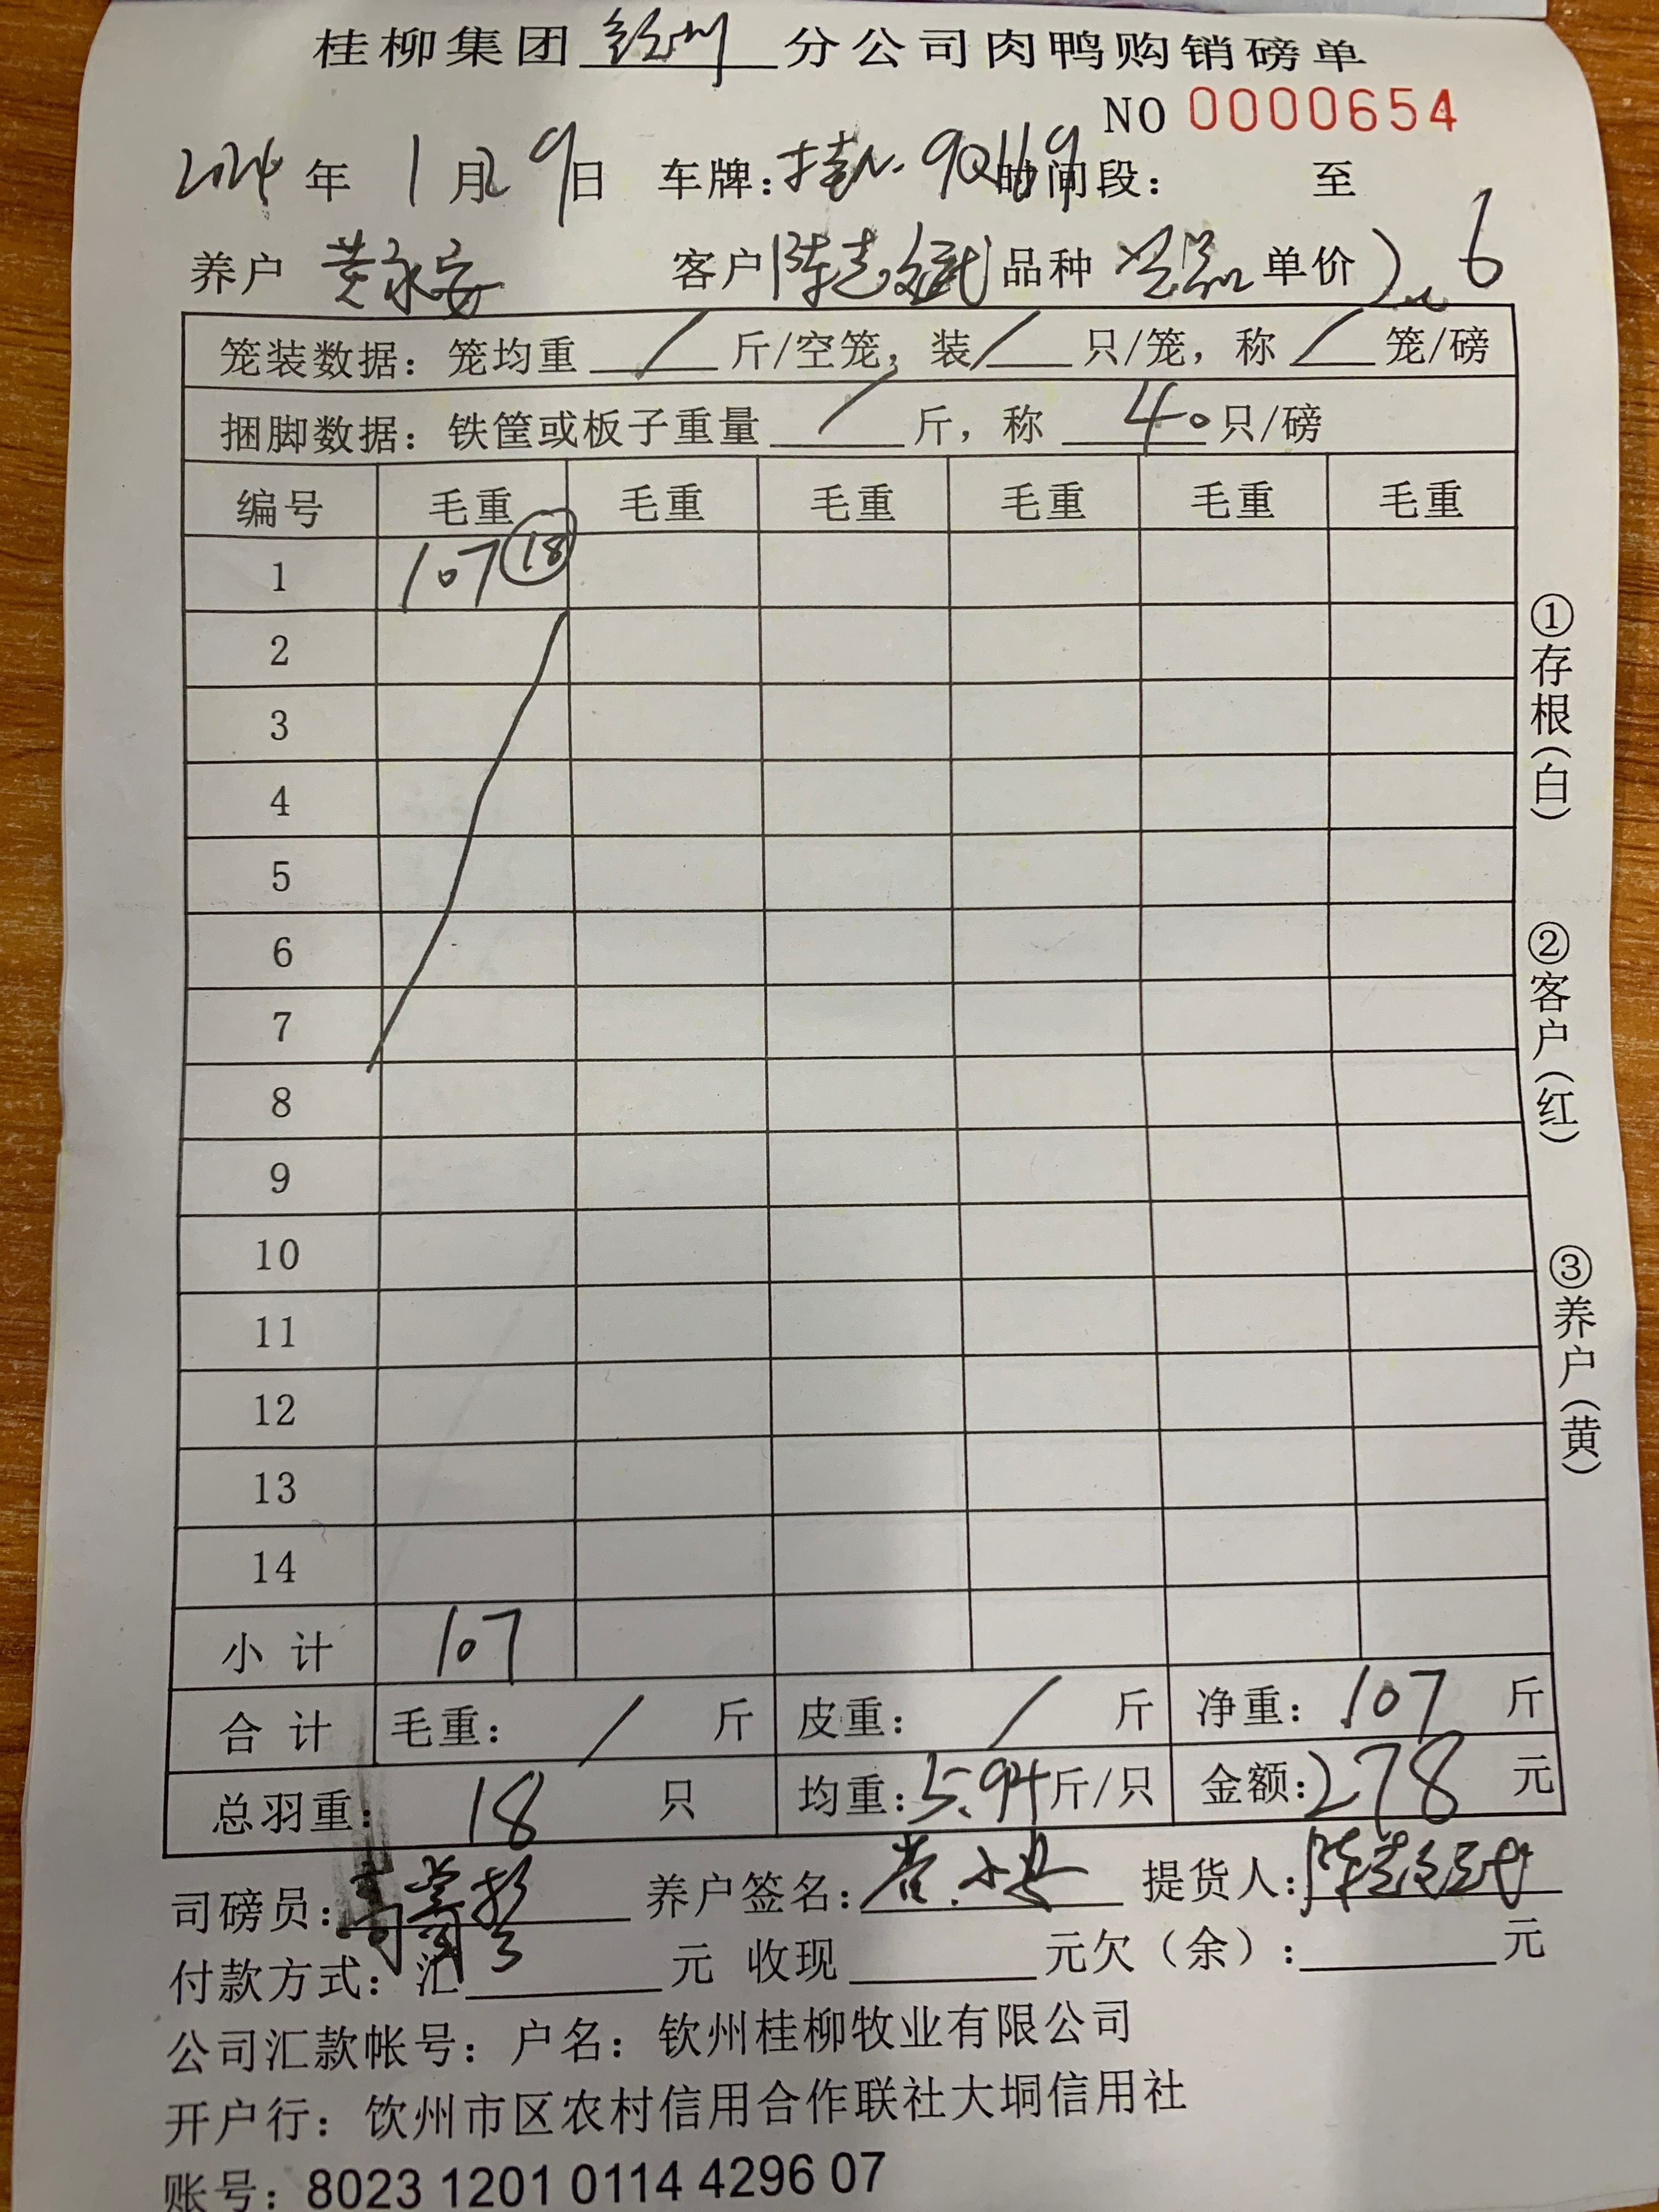 桂柳集团 钦州 分公司肉鸭购销磅单
NO 0000654
2024 年 1 月 9 日 车牌: 桂N·9Q119 时间段: 至
养户 黄永安 客户 陈志斌 品种 单价 2.6
笼装数据: 笼均重 / 斤/空笼, 装 / 只/笼, 称 / 笼/磅
捆脚数据: 铁筐或板子重量 / 斤, 称 40 只/磅
编号 毛重 毛重 毛重 毛重 毛重 毛重
1 107 ⑱
2
3
4
5
6
7
8
9
10
11
12
13
14
小计 107
合计 毛重: / 斤 皮重: / 斤 净重: 107 斤
总羽重: 18 只 均重: 5.94 斤/只 金额: 278 元
司磅员: 养户签名: 提货人: 陈志斌
付款方式: 汇 元 收现 元欠(余): 元
公司汇款帐号: 户名: 钦州桂柳牧业有限公司
开户行: 钦州市区农村信用合作联社大垌信用社
账号: 8023 1201 0114 4296 07
①存根(白)
②客户(红)
③养户(黄)